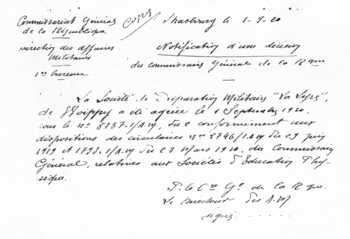 Commissariat Général
de la République
copie
Strasbourg le 1-9-20
Direction des affaires
Militaires
Notification d'une decision
du commissaire Général de la R que
1er bureau
La Société de Preparation Militaire "La
de a été agréée le 1 Septembre 1920
sous le no 8737-I/AM, conformement aux
dispositions des circulaires nos 8746/I.AM du 23 juin
1919 et 1898. I/AM du 27 Mars 1920, du Commissaire
Général, relatives aux Sociétés d'Education Phy-
sique.
P. le Cre Gl de la R que
Le Directeur des A M
signé